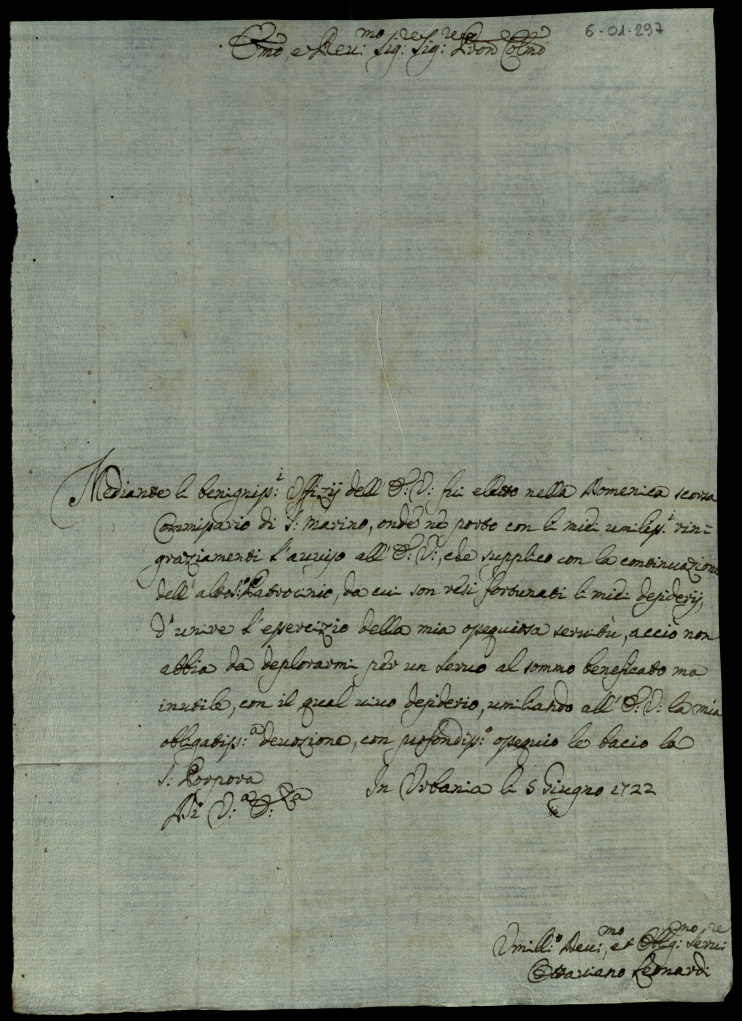 6-01-297
Emo, e Reu:mo Sig:re Sig:re Pron Colmo
Mediante li benignis:i Uffizij dell' E: V: fui eletto nella Domenica scorsa
Commissario di S: Marino, onde ne porto con li miei umilis:i rin=
graziamenti l'auviso all' E: V:, che supplico con la continuazione
dell' altos:o Padrocinio, da cui son resi fortunati li miei desiderij,
d'unire l'esercizio della mia ossequiosa seruitu, acciò non
abbia da deplorarmi per un seruo al sommo beneficato ma
inutile, con il qual uiuo desiderio, umiliando all' E: V: la mia
obligatis:a deuozione, con profondis:o ossequio le bacio la
S: Porpora
Di V:a E:za In Urbania li 5 Giugno 1722
Umill:o Deu:mo, et Obblig:mo Seru:re
Ottauiano Leonardi